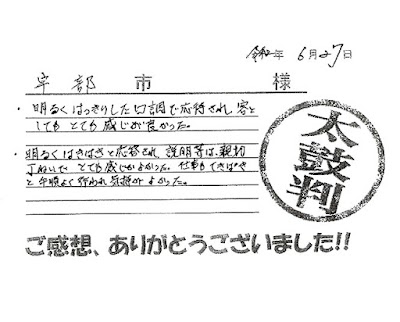 令和 年 6月27日
宇部市 様
・明るくはっきりした口調で応待され、客と
しても とても感じが良かった。
・明るくはきはきと応答され、説明等は、親切
丁ねいで とても感じがよかった。仕事もてきぱき
と手順よく行われ気持がよかった。
太鼓判
ご感想、ありがとうございました!!